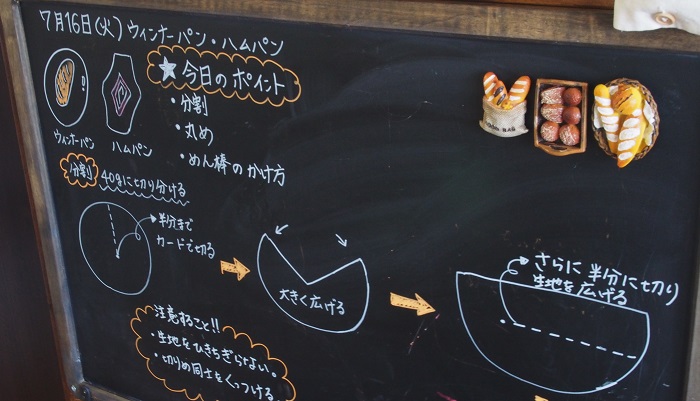 7月16日(火) ウィンナーパン・ハムパン
ウィンナーパン
ハムパン
★今日のポイント
・分割
・丸め
・めん棒のかけ方
分割 40gに切り分ける
半分まで
カードで切る
大きく広げる
さらに半分に切り
生地を広げる
注意すること!!
・生地をひきちぎらない。
・切りめ同士をくっつける